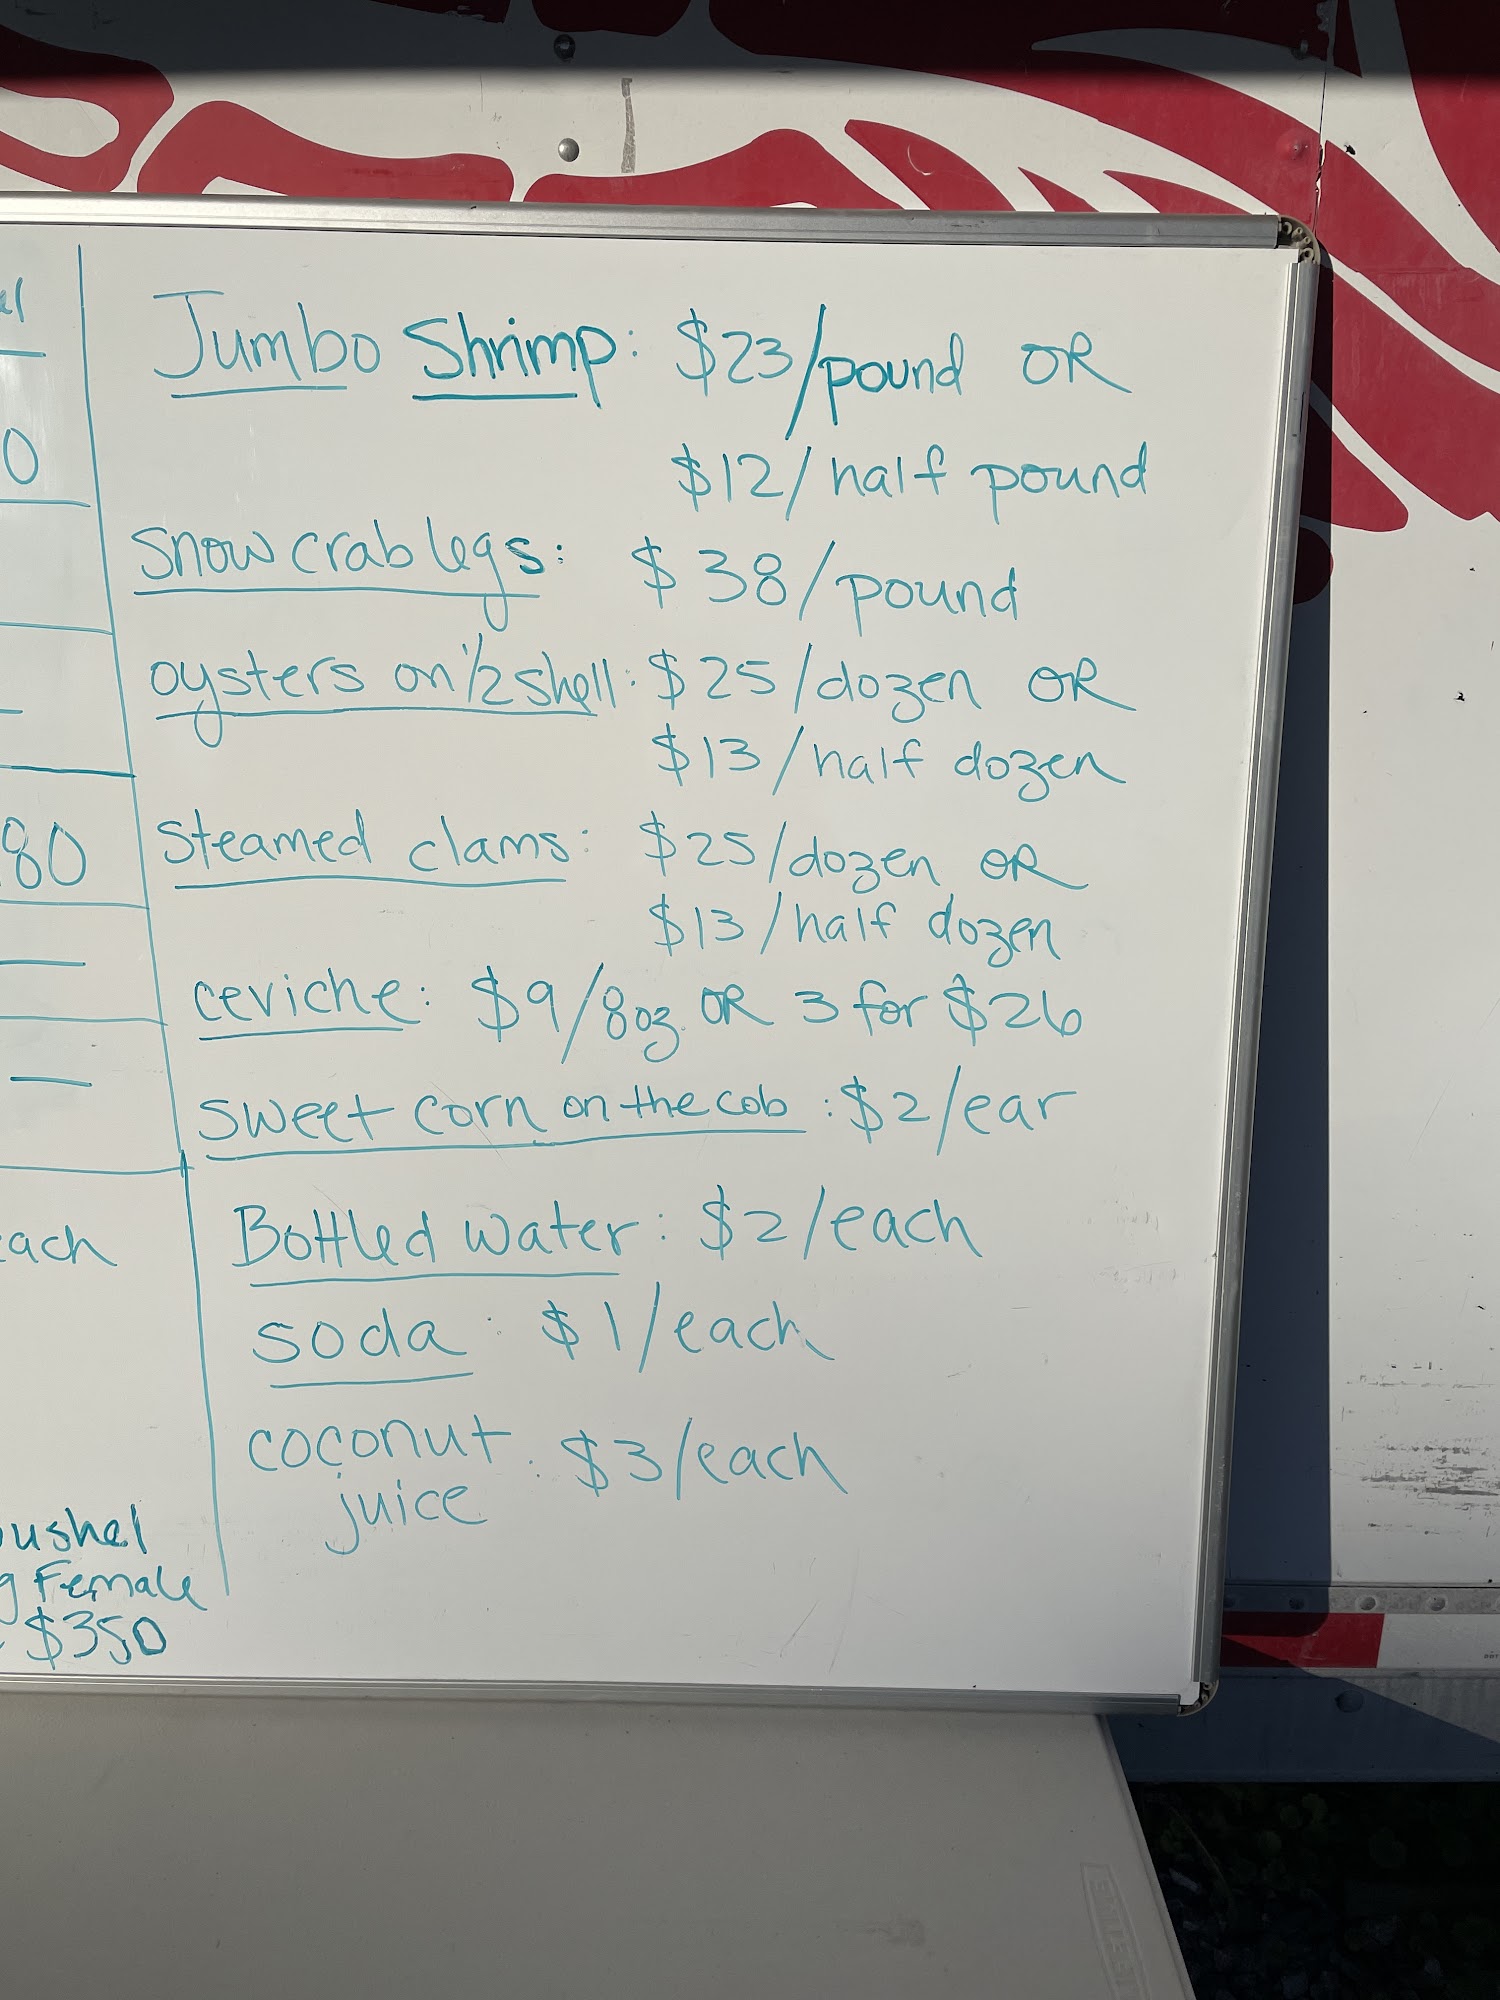 Jumbo Shrimp: $23/pound OR
$12/half pound
Snow crab legs: $38/pound
oysters on 1/2 shell: $25/dozen OR
$13/half dozen
Steamed clams: $25/dozen OR
$13/half dozen
ceviche: $9/8oz. OR 3 for $26
Sweet corn on the cob: $2/ear
Bottled water: $2/each
soda: $1/each
coconut : $3/each
juice
0
80
each
bushel
Female
$350